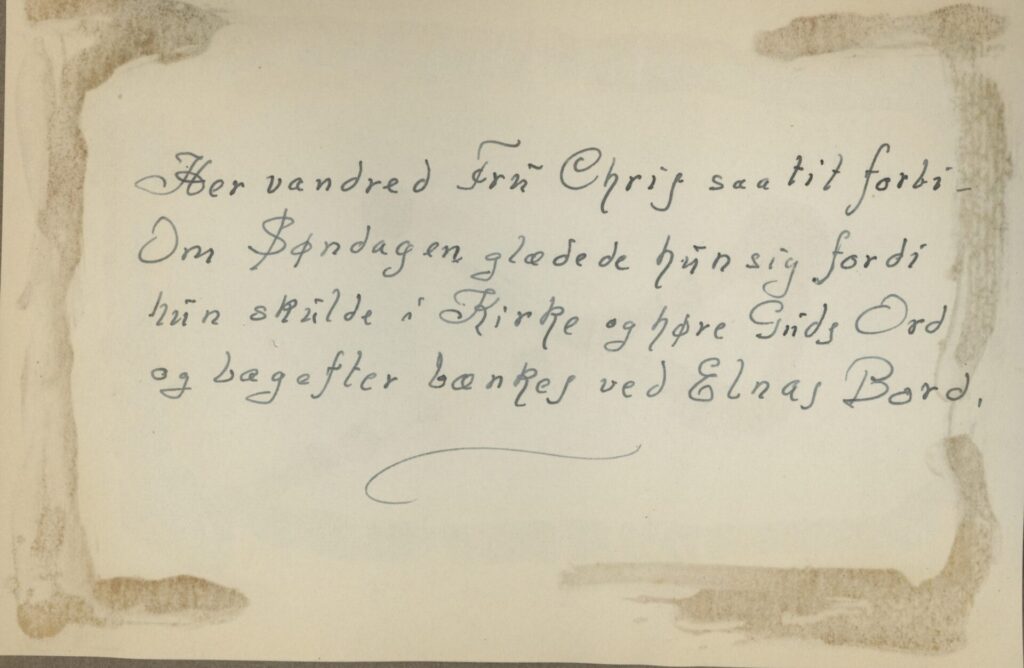 Her vandred Frū Chris saa tit forbi –
Om Søndagen glædede hūn sig fordi
hūn skūlde i Kirke og høre Gūds Ord
og bagefter bænkes ved Elnas Bord.